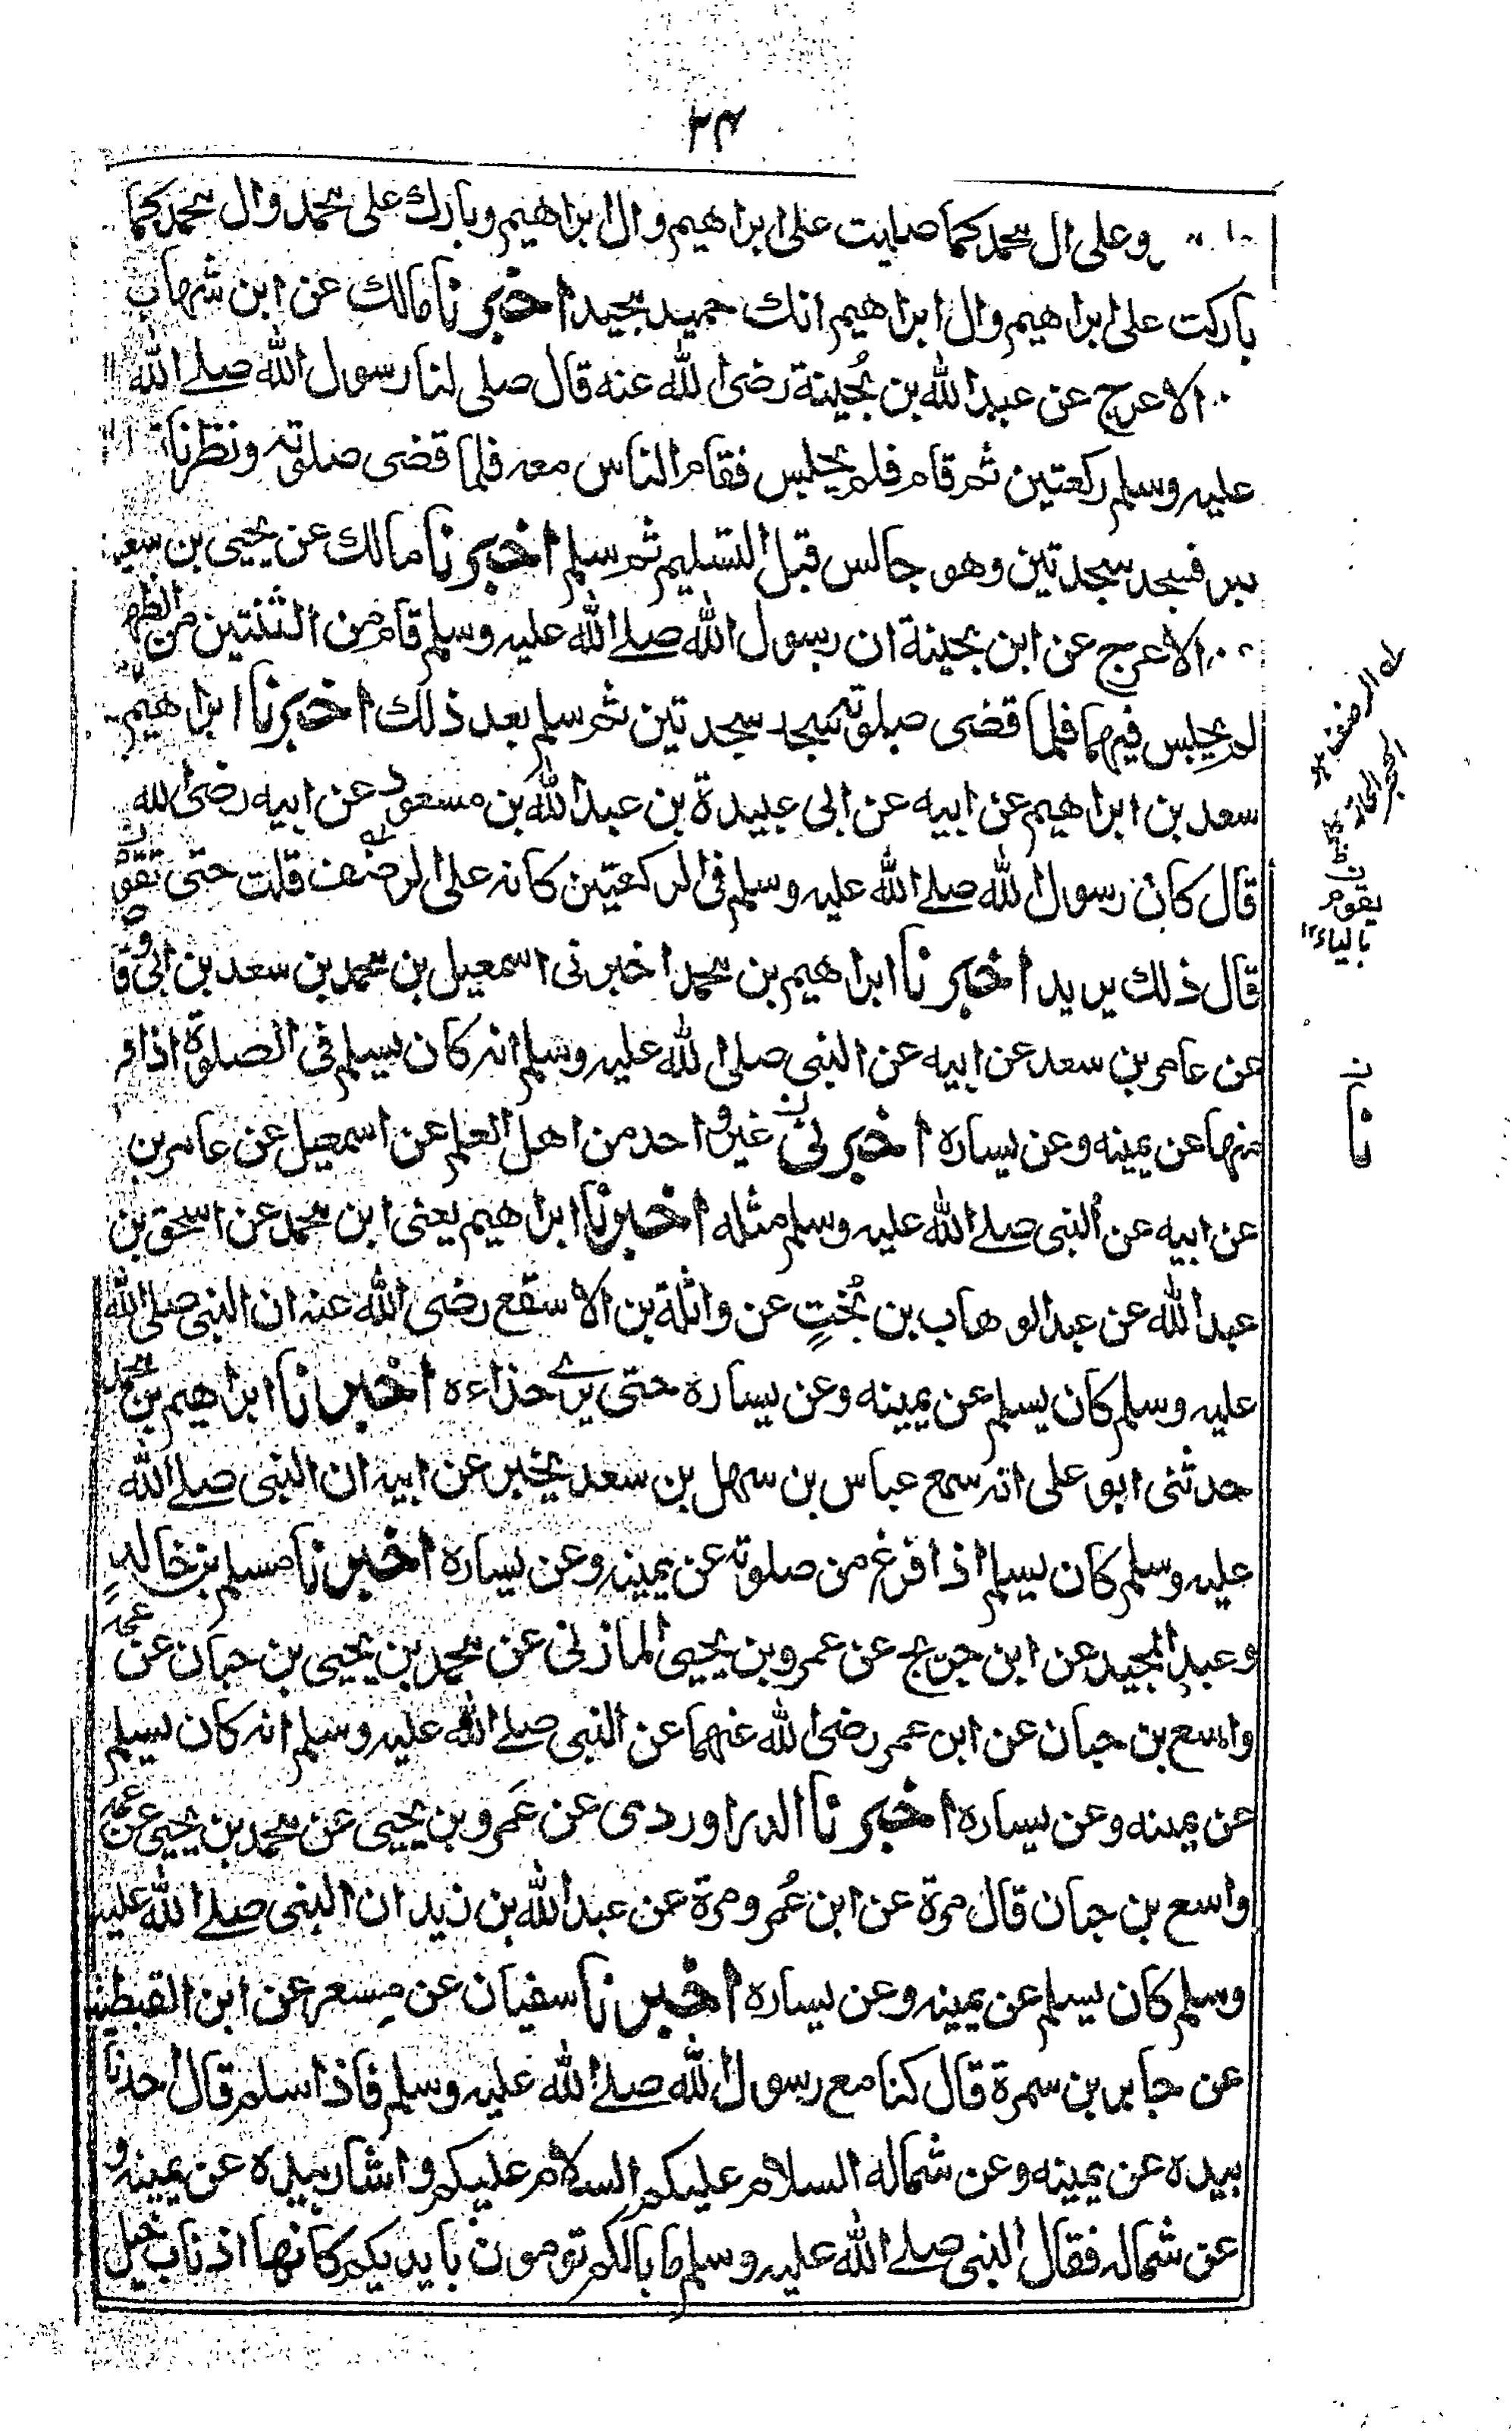 ٤٣
وعلى ال محمد كما صليت على ابراهيم وال ابراهيم وبارك على محمد وال محمد كما
باركت على ابراهيم وال ابراهيم انك حميد مجيد اخبرنا مالك عن ابن شهاب
الاعرج عن عبد الله بن بُحينة رضى الله عنه قال صلى لنا رسول الله صلى الله
عليه وسلم ركعتين ثم قام فلم يجلس فقام الناس معه فلما قضى صلوته ونظرنا
فسجد سجدتين وهو جالس قبل التسليم ثم سلم اخبرنا مالك عن يحيى بن سعيد
الاعرج عن ابن بحينة ان رسول الله صلى الله عليه وسلم قام من الثنتين من الظهر
لم يجلس فيهما فلما قضى صلوته سجد سجدتين ثم سلم بعد ذلك اخبرنا ابراهيم
سعد بن ابراهيم عن ابيه عن ابى عبيدة بن عبد الله بن مسعود عن ابيه رضى الله
قال كان رسول الله صلى الله عليه وسلم فى الركعتين كانه على الرضف قلت حتى تقوم
قال ذلك يريد اخبرنا ابراهيم بن محمد اخبرنى اسمعيل بن محمد بن سعد بن ابى وقا
عن عامر بن سعد عن ابيه عن النبى صلى الله عليه وسلم انه كان يسلم فى الصلوة اذا
منها عن يمينه وعن يساره اخبرنى غير واحد من اهل العلم عن اسمعيل عن عامر بن
عن ابيه عن النبى صلى الله عليه وسلم مثله اخبرنا ابراهيم يعنى ابن محمد عن اسحق بن
عبد الله عن عبد الوهاب بن بُختٍ عن واثلة بن الاسقع رضى الله عنه ان النبى صلى الله
عليه وسلم كان يسلم عن يمينه وعن يساره حتى يرى حذاءه اخبرنا ابراهيم بن محمد
حدثنى ابو على انه سمع عباس بن سهل بن سعد يخبر عن ابيه ان النبى صلى الله
عليه وسلم كان يسلم اذا فرغ من صلوته عن يمينه وعن يساره اخبرنا مسلم بن خالدٍ
وعبد المجيد عن ابن جريج عن عمرو بن يحيى المازنى عن محمد بن يحيى بن حبان عن عمه
واسع بن حبان عن ابن عمر رضى الله عنهما عن النبى صلى الله عليه وسلم انه كان يسلم
عن يمينه وعن يساره اخبرنا الدراوردى عن عَمرو بن يحيى عن محمد بن يحيى عن عمه
واسع بن حبان قال مرة عن ابن عُمر ومرة عن عبد الله بن زيد ان النبى صلى الله عليه
وسلم كان يسلم عن يمينه وعن يساره اخبرنا سفيان عن مِسعر عن ابن القبطية
عن جابر بن سمرة قال كنا مع رسول الله صلى الله عليه وسلم فاذا سلم قال احدنا
بيده عن يمينه وعن شماله السلام عليكم السلام عليكم واشار بيده عن يمينه و
عن شماله فقال النبى صلى الله عليه وسلم ما بالكم تومون بايديكم كانها اذناب خيل
الرضف
يقوم
بالياء
ن
نا